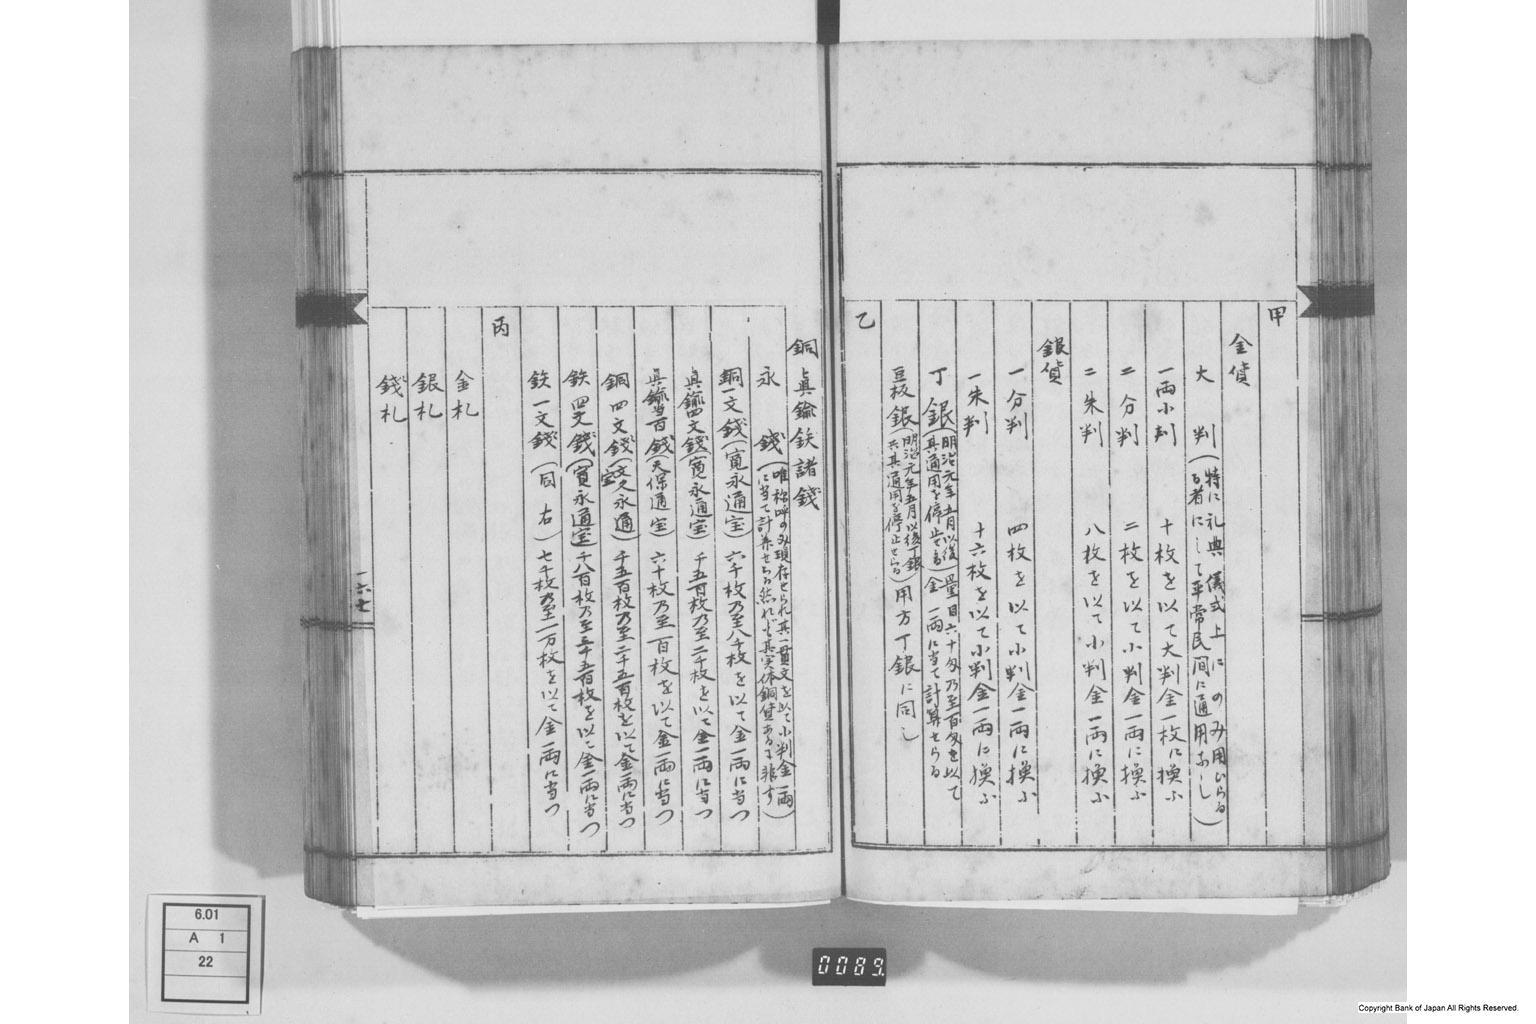 甲
金貨
大判(特に礼典儀式上にのみ用ひらるる者にして平常民間に通用なし)
一両小判 十枚を以て大判金一枚に換ふ
二分判 二枚を以て小判金一両に換ふ
二朱判 八枚を以て小判金一両に換ふ
銀貨
一分判 四枚を以て小判金一両に換ふ
一朱判 十六枚を以て小判金一両に換ふ
丁銀(明治元年五月以後其通用を停止せらる)量目六十匁乃至百匁を以て金一両に当て計算せらる
豆板銀(明治元年五月以後丁銀と共其通用を停止せらる)用方丁銀に同し
乙
銅真鍮鉄諸銭
永銭(唯称呼のみ現存せられ其一貫文を以て小判金一両に当て計算せらる然れども其実体銅貨あるに非す)
銅一文銭(寛永通宝)六千枚乃至八千枚を以て金一両に当つ
真鍮四文銭(寛永通宝)千五百枚乃至二千枚を以て金一両に当つ
真鍮当百銭(天保通宝)六十枚乃至一百枚を以て金一両に当つ
銅四文銭(文久永通宝)千五百枚乃至二千五百枚を以て金一両に当つ
鉄四文銭(寛永通宝)千八百枚乃至二千五百枚を以て金一両に当つ
鉄一文銭(同右)七千枚乃至一万枚を以て金一両に当つ
丙
金札
銀札
銭札
一六七
6.01
A 1
22
0089
Copyright Bank of Japan All Rights Reserved.